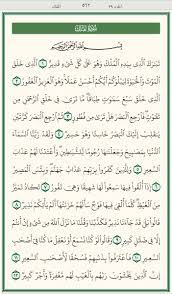 الجزء ٢٩ ٥٦٢ الملك
سُورَةُ المُلْكِ
بِسْمِ ٱللَّهِ ٱلرَّحْمَٰنِ ٱلرَّحِيمِ
تَبَٰرَكَ ٱلَّذِي بِيَدِهِ ٱلْمُلْكُ وَهُوَ عَلَىٰ كُلِّ شَيْءٍ قَدِيرٌ ١ ٱلَّذِي خَلَقَ
ٱلْمَوْتَ وَٱلْحَيَوٰةَ لِيَبْلُوَكُمْ أَيُّكُمْ أَحْسَنُ عَمَلًا وَهُوَ ٱلْعَزِيزُ ٱلْغَفُورُ ٢
ٱلَّذِي خَلَقَ سَبْعَ سَمَٰوَٰتٍ طِبَاقًا مَّا تَرَىٰ فِي خَلْقِ ٱلرَّحْمَٰنِ مِن
تَفَٰوُتٍ فَٱرْجِعِ ٱلْبَصَرَ هَلْ تَرَىٰ مِن فُطُورٍ ٣ ثُمَّ ٱرْجِعِ ٱلْبَصَرَ كَرَّتَيْنِ
يَنقَلِبْ إِلَيْكَ ٱلْبَصَرُ خَاسِئًا وَهُوَ حَسِيرٌ ٤ وَلَقَدْ زَيَّنَّا ٱلسَّمَآءَ
ٱلدُّنْيَا بِمَصَٰبِيحَ وَجَعَلْنَٰهَا رُجُومًا لِّلشَّيَٰطِينِ وَأَعْتَدْنَا لَهُمْ عَذَابَ
ٱلسَّعِيرِ ٥ وَلِلَّذِينَ كَفَرُوا۟ بِرَبِّهِمْ عَذَابُ جَهَنَّمَ وَبِئْسَ ٱلْمَصِيرُ
٦ إِذَآ أُلْقُوا۟ فِيهَا سَمِعُوا۟ لَهَا شَهِيقًا وَهِيَ تَفُورُ ٧ تَكَادُ تَمَيَّزُ
مِنَ ٱلْغَيْظِ كُلَّمَآ أُلْقِيَ فِيهَا فَوْجٌ سَأَلَهُمْ خَزَنَتُهَآ أَلَمْ يَأْتِكُمْ نَذِيرٌ ٨
قَالُوا۟ بَلَىٰ قَدْ جَآءَنَا نَذِيرٌ فَكَذَّبْنَا وَقُلْنَا مَا نَزَّلَ ٱللَّهُ مِن شَيْءٍ إِنْ أَنتُمْ
إِلَّا فِي ضَلَٰلٍ كَبِيرٍ ٩ وَقَالُوا۟ لَوْ كُنَّا نَسْمَعُ أَوْ نَعْقِلُ مَا كُنَّا فِيٓ أَصْحَٰبِ
ٱلسَّعِيرِ ١٠ فَٱعْتَرَفُوا۟ بِذَنۢبِهِمْ فَسُحْقًا لِّأَصْحَٰبِ ٱلسَّعِيرِ ١١
إِنَّ ٱلَّذِينَ يَخْشَوْنَ رَبَّهُم بِٱلْغَيْبِ لَهُم مَّغْفِرَةٌ وَأَجْرٌ كَبِيرٌ ١٢